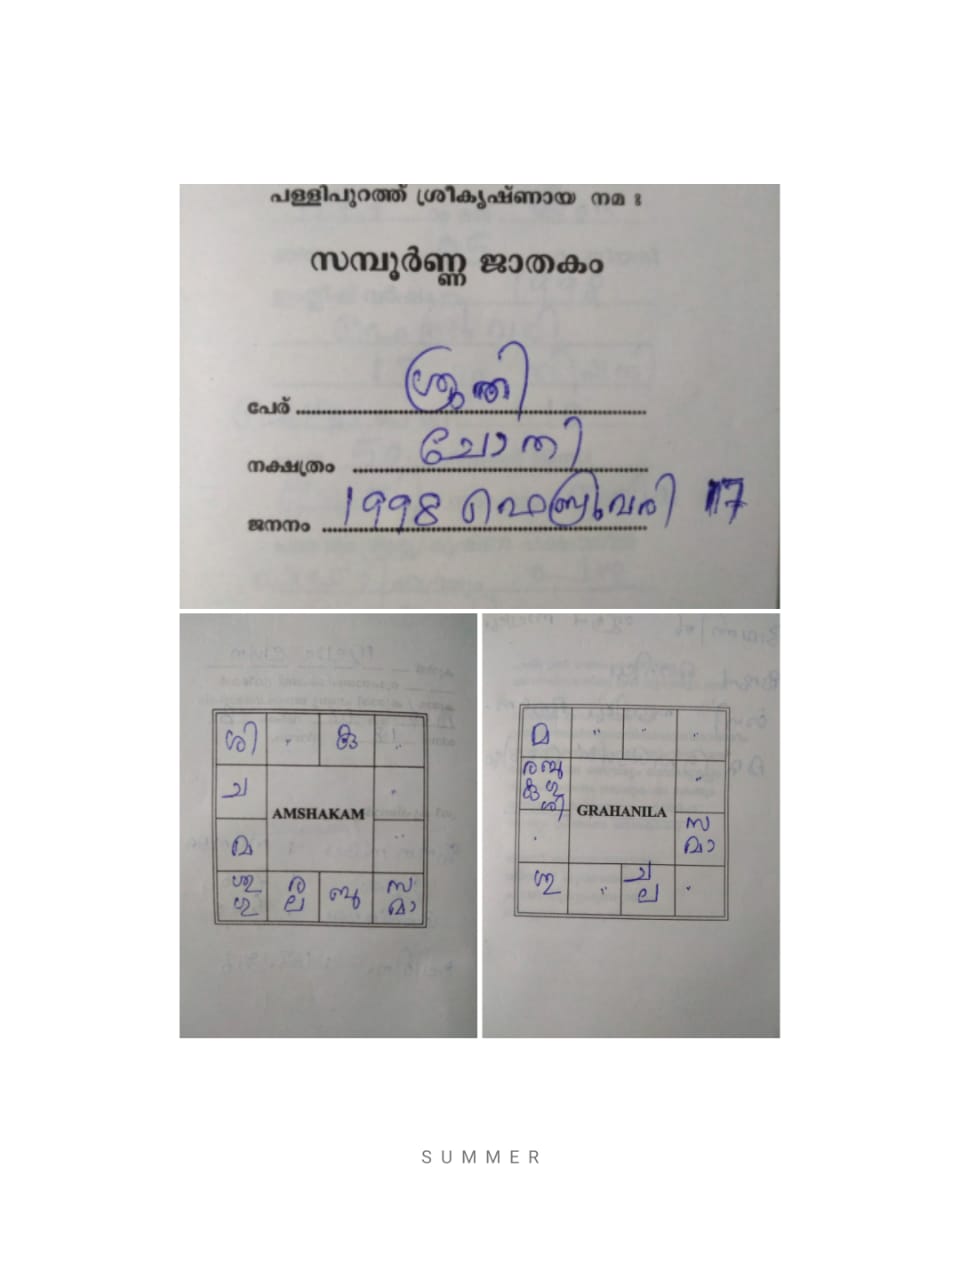 പള്ളിപുറത്ത് ശ്രീകൃഷ്ണായ നമ ഃ
സമ്പൂർണ്ണ ജാതകം
പേര് ശ്രുതി
നക്ഷത്രം ചോതി
ജനനം 1998 ഫെബ്രുവരി 17
ശി കു
ച
AMSHAKAM
മ
ശു ഗു ര ല ബു സ മാ
മ
ര ബു കു ഗു ശി
GRAHANILA
സ മാ
ശു ച ല
SUMMER